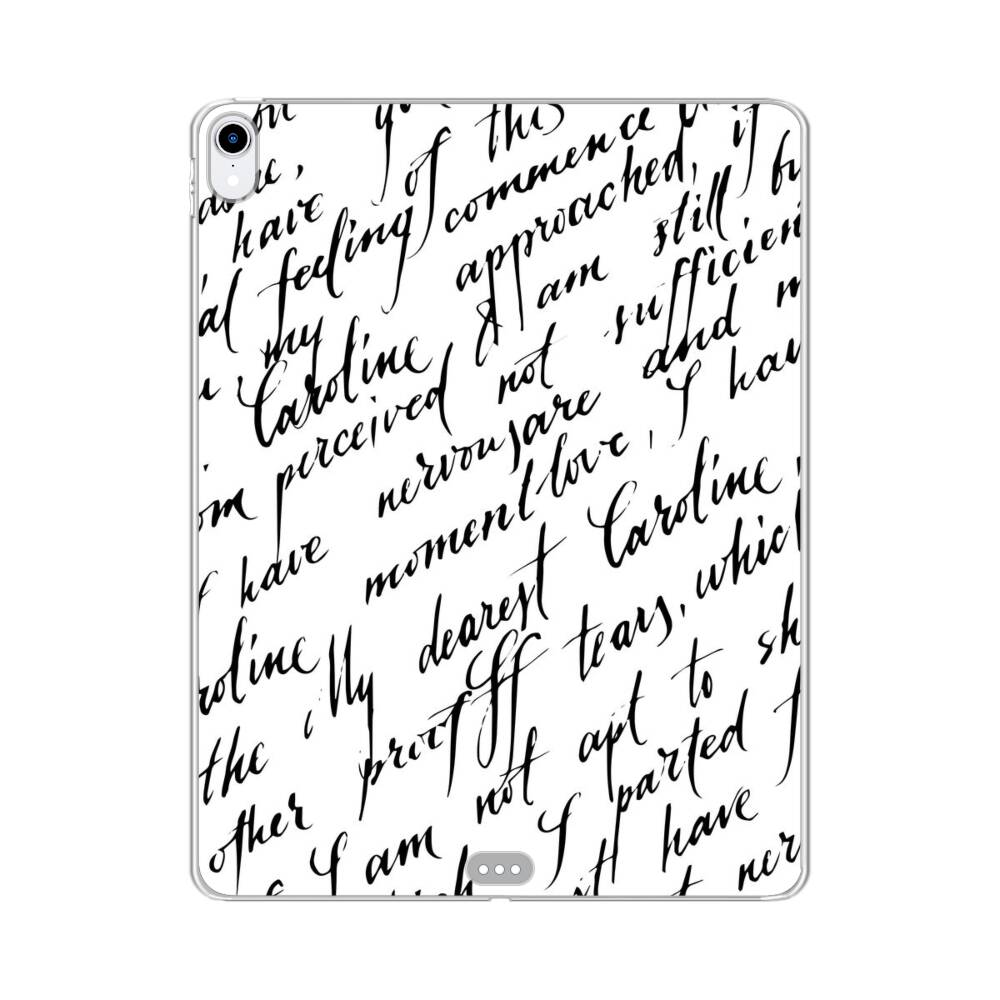 you this
have of commence if
al feeling approached, if
my am still
Caroline & not sufficien
om perceived and m
nervous are I hav
f have moment love,
dearest Caroline,
roline My tears, whic
the proof apt to sh
other not parted
I am I have
it ner